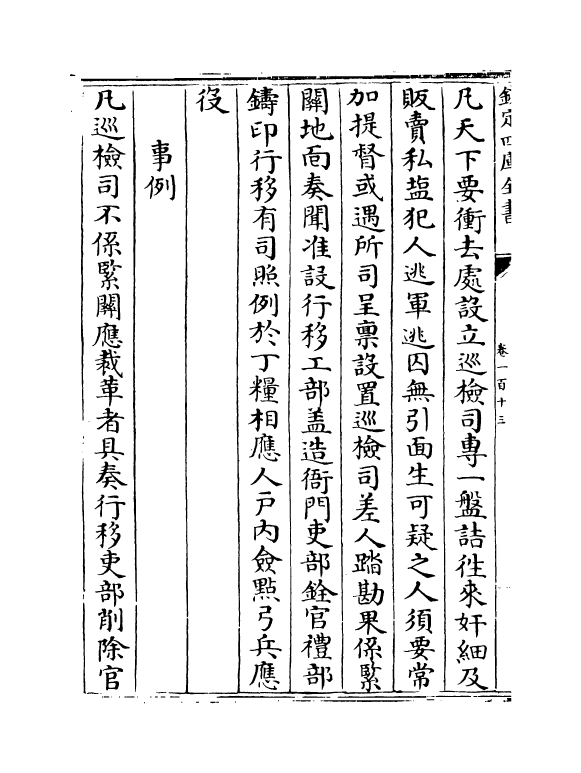 欽定四庫全書
卷一百十三
凡天下要衝去處設立巡檢司專一盤詰徃來奸細及
販賣私塩犯人逃軍逃囚無引面生可疑之人須要常
加提督或遇所司呈禀設置巡檢司差人踏勘果係緊
關地面奏聞准設行移工部盖造衙門吏部銓官禮部
鑄印行移有司照例於丁糧相應人戸內僉㸃弓兵應
役
事例
凡巡檢司不係緊關應裁革者具奏行移吏部削除官